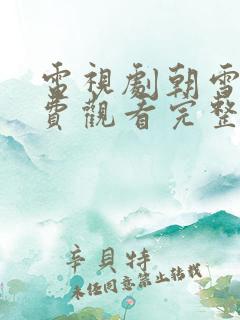 電視劇朝雪
費觀看完整
辛貝特
未任同意禁止转载